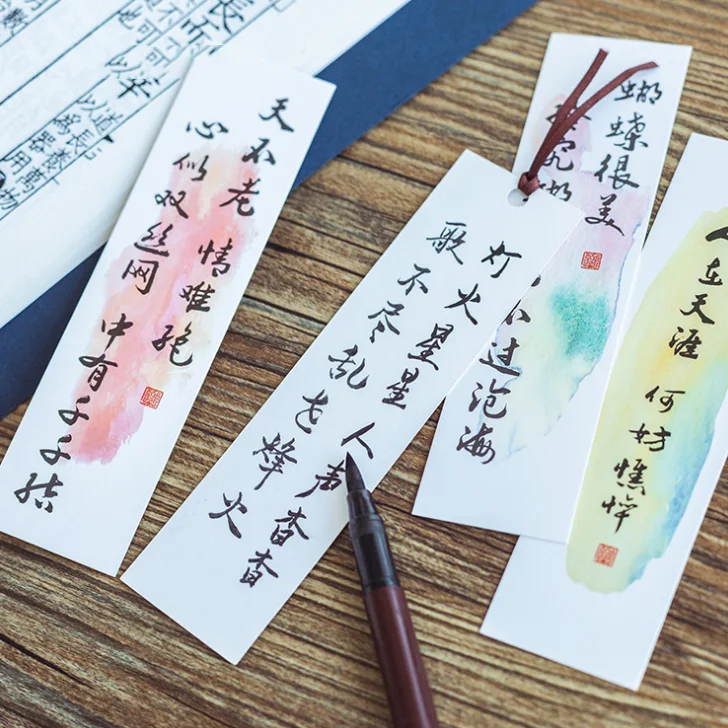 天不老 情难绝
心似双丝网 中有千千结
灯火星星 人声杳杳
歌不尽乱世烽火
蝴蝶很美
过沧海
天涯 何妨憔悴